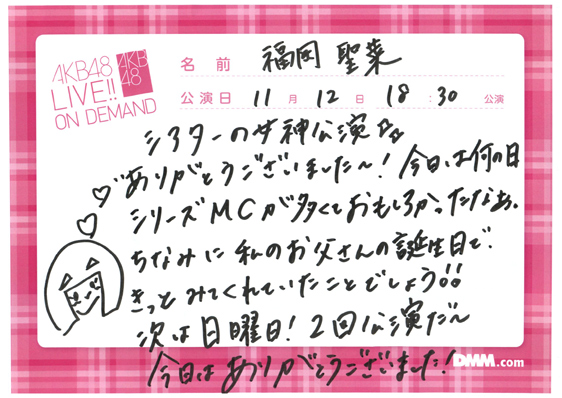 AKB48
LIVE!!
ON DEMAND
AKB
48
名前 福岡 聖菜
公演日 11月 12日 18:30 公演
シアターの女神公演
ありがとうございました〜! 今日は何の日
シリーズMCが多くておもしろかったなぁ、
ちなみに私のお父さんの誕生日で
きっとみてくれていたことでしょう!!
次は日曜日! 2回公演だ〜
今日はありがとうございました!
DMM.com